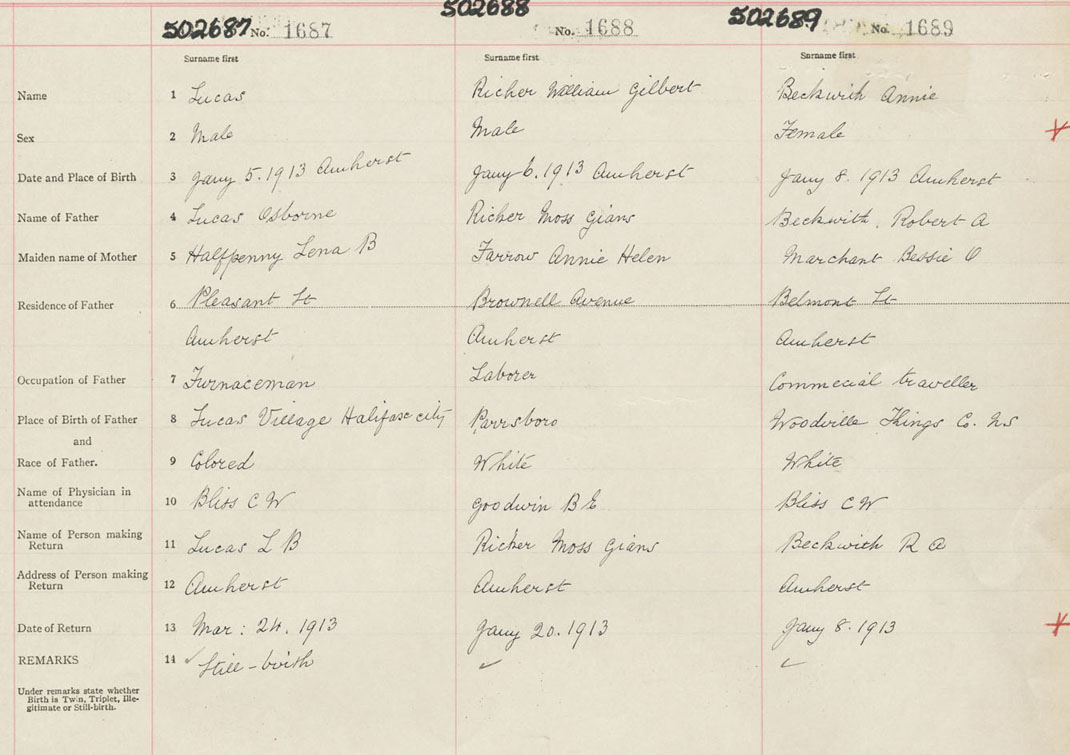 502687 No. 1687 502688 No. 1688 502689 No. 1689
Surname first Surname first Surname first
Name 1 Lucas Richer William Gilbert Beckwith Annie
Sex 2 Male Male Female
Date and Place of Birth 3 Jany 5. 1913 Amherst Jany 6. 1913 Amherst Jany 8. 1913 Amherst
Name of Father 4 Lucas Osborne Richer Moss Beckwith, Robert A
Maiden name of Mother 5 Halfpenny Lena B Farrow Annie Helen Marchant Bessie O
Residence of Father 6 Pleasant St Brownell Avenue Belmont St
Amherst Amherst Amherst
Occupation of Father 7 Furnaceman Laborer Commecial traveller
Place of Birth of Father 8 Lucas Village Halifax city Parrsboro Woodville Kings Co. NS
and
Race of Father. 9 Colored White White
Name of Physician in 10 Bliss C W Goodwin B E Bliss C W
attendance
Name of Person making 11 Lucas L B Richer Moss Beckwith R A
Return
Address of Person making 12 Amherst Amherst Amherst
Return
Date of Return 13 Mar: 24. 1913 Jany 20. 1913 Jany 8. 1913
REMARKS 14 Still-birth
Under remarks state whether
Birth is Twin, Triplet, Ille-
gitimate or Still-birth.